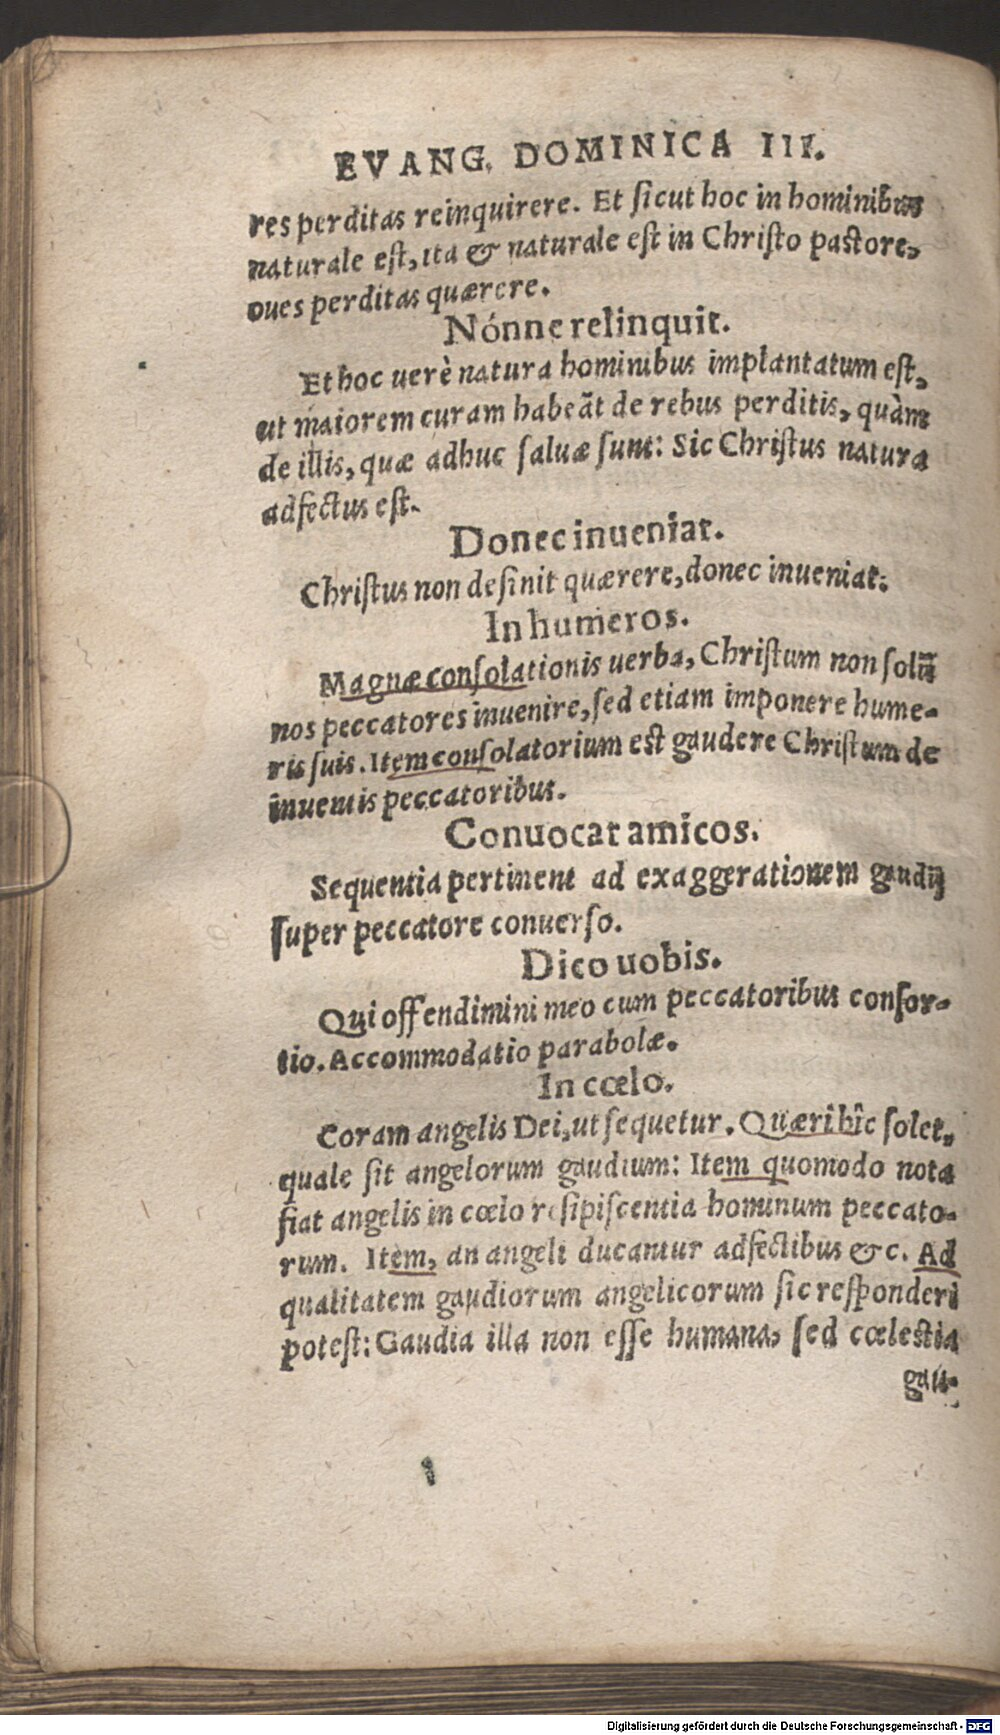 EVANG. DOMINICA III.
res perditas reinquirere. Et sicut hoc in hominibus
naturale est, ita & naturale est in Christo pastore,
oues perditas quærere.
Nónne relinquit.
Et hoc uerè natura hominibus implantatum est,
ut maiorem curam habeãt de rebus perditis, quàm
de illis, quæ adhuc saluæ sunt: Sic Christus natura
adfectus est.
Donec inueniat.
Christus non desinit quærere, donec inueniat.
In humeros.
Magnæ consolationis uerba, Christum non solũ
nos peccatores inuenire, sed etiam imponere hume-
ris suis. Item consolatorium est gaudere Christum de
inuentis peccatoribus.
Conuocat amicos.
Sequentia pertinent ad exaggerationem gaudij
super peccatore conuerso.
Dico uobis.
Qui offendimini meo cum peccatoribus consor-
tio. Accommodatio parabolæ.
In cœlo.
Coram angelis Dei, ut sequetur. Quæri hîc solet,
quale sit angelorum gaudium: Item quomodo nota
fiat angelis in cœlo resipiscentia hominum peccato-
rum. Item, an angeli ducantur adfectibus &c. Ad
qualitatem gaudiorum angelicorum sic responderi
potest: Gaudia illa non esse humana, sed cœlestia
gau-
Digitalisierung gefördert durch die Deutsche Forschungsgemeinschaft - DFG